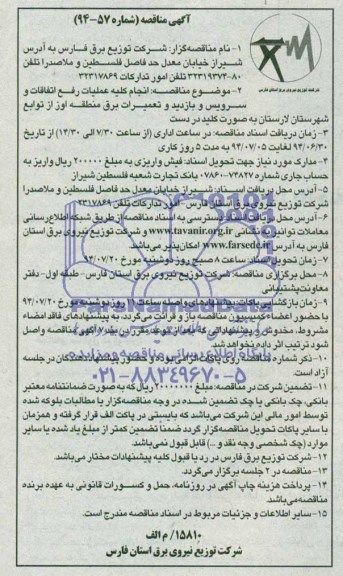 آگهی مناقصه (شماره ۵۷-۹۴)
شرکت توزیع نیروی برق استان فارس
۱- نام مناقصه‌گزار: شرکت توزیع برق فارس به آدرس
شیراز خیابان معدل حد فاصل فلسطین و ملاصدرا تلفن
۸۰-۳۲۳۱۹۳۷۴ تلفن امور تدارکات ۳۲۳۱۷۸۶۹
۲- موضوع مناقصه: انجام کلیه عملیات رفع اتفاقات و
سرویس و بازدید و تعمیرات برق منطقه اوز از توابع
شهرستان لارستان به صورت کلید در دست
۳- زمان دریافت اسناد مناقصه: در ساعت اداری (از ساعت ۷/۳۰ الی ۱۴/۳۰) از تاریخ
۹۴/۰۶/۳۰ لغایت ۹۴/۰۷/۰۵ به مدت ۵ روز کاری
۴- مدارک مورد نیاز جهت تحویل اسناد: فیش واریزی به مبلغ ۲۰۰۰۰۰ ریال واریز به
حساب جاری شماره ۰۷۸۶۰۰۷۴۸۲۷ بانک تجارت شعبه فلسطین شیراز
۵- آدرس محل دریافت اسناد: شیراز خیابان معدل حد فاصل فلسطین و ملاصدرا
شرکت توزیع نیروی برق استان فارس - امور تدارکات تلفن ۳۲۳۱۷۸۶۹
۶- آدرس محل دریافت دسترسی به اسناد مناقصه: از طریق شبکه اطلاع‌رسانی
معاملات توانیر به نشانی www.tavanir.org.ir و شرکت توزیع نیروی برق استان
فارس به آدرس www.farsedc.ir امکان‌پذیر می‌باشد
۷- زمان تحویل اسناد: ساعت ۸ صبح روز دوشنبه مورخ ۹۴/۰۷/۲۰
۸- محل برگزاری مناقصه: شرکت توزیع نیروی برق استان فارس- طبقه اول- دفتر
معاونت پشتیبانی
۹- زمان بازگشایی پاکات پیشنهادهای واصله ساعت ۱۱ روز دوشنبه مورخ ۹۴/۰۷/۲۰
با حضور اعضاء کمیسیون مناقصه باز و قرائت می‌گردد. به پیشنهادهای فاقد امضاء
مشروط، مخدوش و پیشنهاداتی که بعد از موعد مقرر در بند ۷ آگهی مناقصه واصل
شود ترتیب اثر داده نخواهد شد.
۱۰- ذکر شماره مناقصه روی پاکات الزامی بوده و حضور پیشنهاددهندگان در جلسه
آزاد است.
پایگاه اطلاع رسانی مناقصه و مزایده
۰۲۱-۸۸۳۴۹۶۷۰-۵
۱۱- تضمین شرکت در مناقصه: مبلغ ۲۰۰۰۰۰۰۰۰ ریال که به صورت ضمانتنامه معتبر
بانکی، چک بانکی یا چک تضمین شده در وجه مناقصه‌گزار یا مطالبات بلوکه شده
توسط امور مالی این شرکت می‌باشد که بایستی در پاکت الف قرار گرفته و همزمان
با سایر پاکات تحویل مناقصه‌گزار گردد ضمناً تضمین کمتر از مبلغ یاد شده یا سایر
موارد (چک شخصی وجه نقد و ...) قابل قبول نمی‌باشد.
۱۲- شرکت توزیع برق فارس در رد یا قبول کلیه پیشنهادات مختار می‌باشد.
۱۳- مناقصه در ۲ جلسه برگزار می‌گردد.
۱۴- پرداخت هزینه چاپ آگهی در روزنامه، حمل و کسورات قانونی به عهده برنده
مناقصه می‌باشد.
۱۵- سایر اطلاعات و جزئیات مربوط در اسناد مناقصه مندرج است.
۱۵۸۱۰/ م الف
شرکت توزیع نیروی برق استان فارس